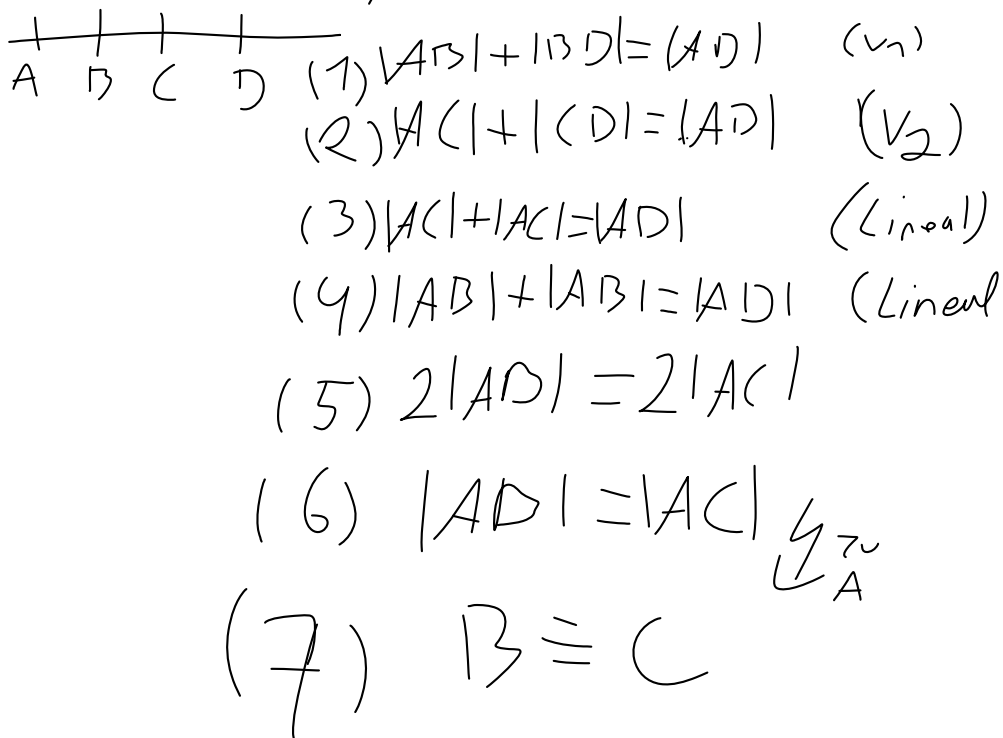 A B C D
(1) |AB| + |BD| = |AD| (V1)
(2) |AC| + |CD| = |AD| (V2)
(3) |AC| + |AC| = |AD| (Lineal)
(4) |AB| + |AB| = |AD| (Lineal
(5) 2|AB| = 2|AC|
(6) |AD| = |AC| ↯ zu
A
(7) B ≡ C